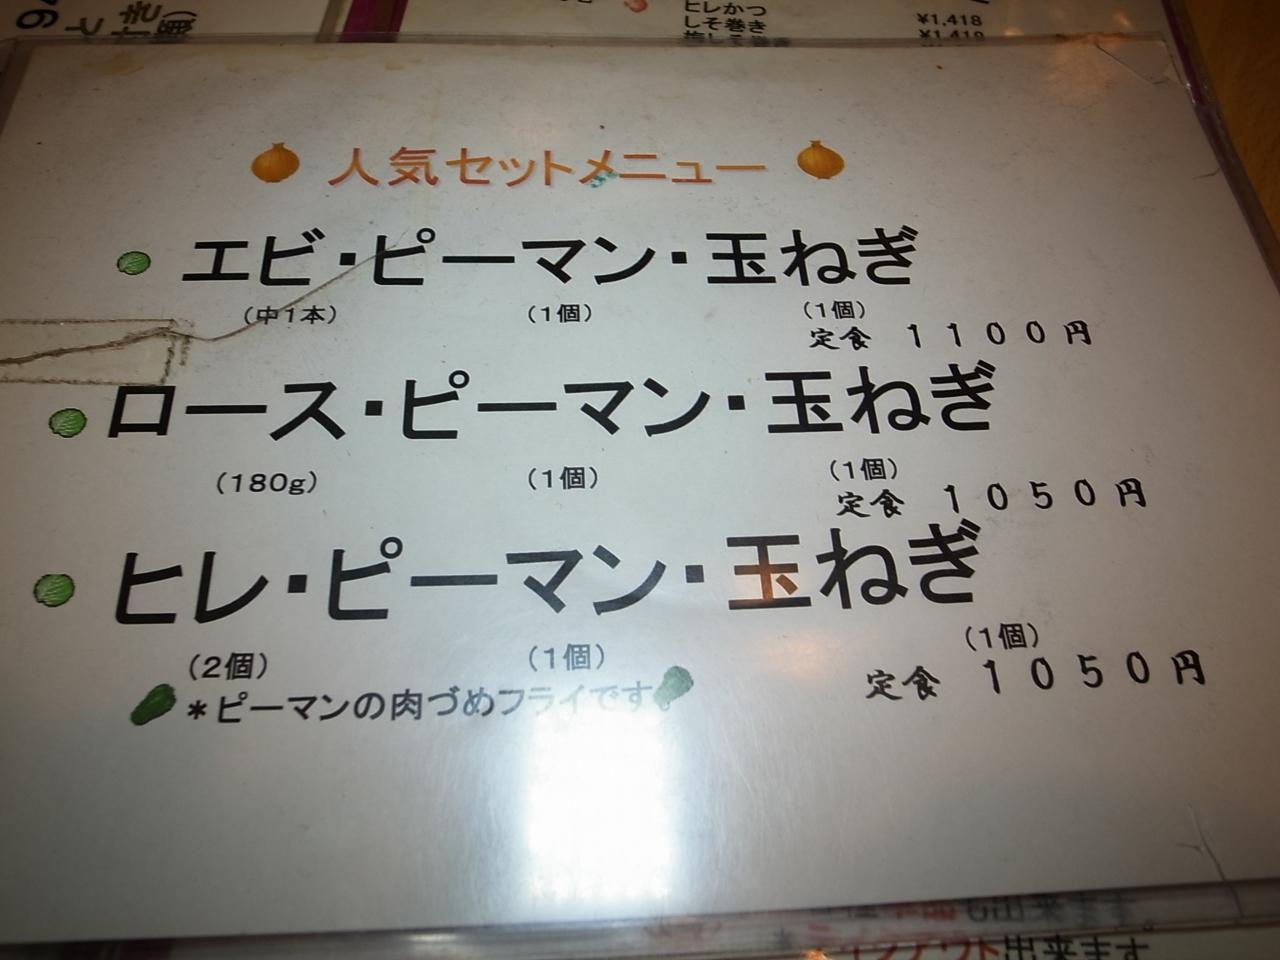 ヒレかつ
しそ巻き
¥1,418
人気セットメニュー
エビ・ピーマン・玉ねぎ
(中1本) (1個) (1個)
定食 1100円
ロース・ピーマン・玉ねぎ
(180g) (1個) (1個)
定食 1050円
ヒレ・ピーマン・玉ねぎ
(2個) (1個) (1個)
定食 1050円
*ピーマンの肉づめフライです
も出来ます。
テイクアウト出来ます